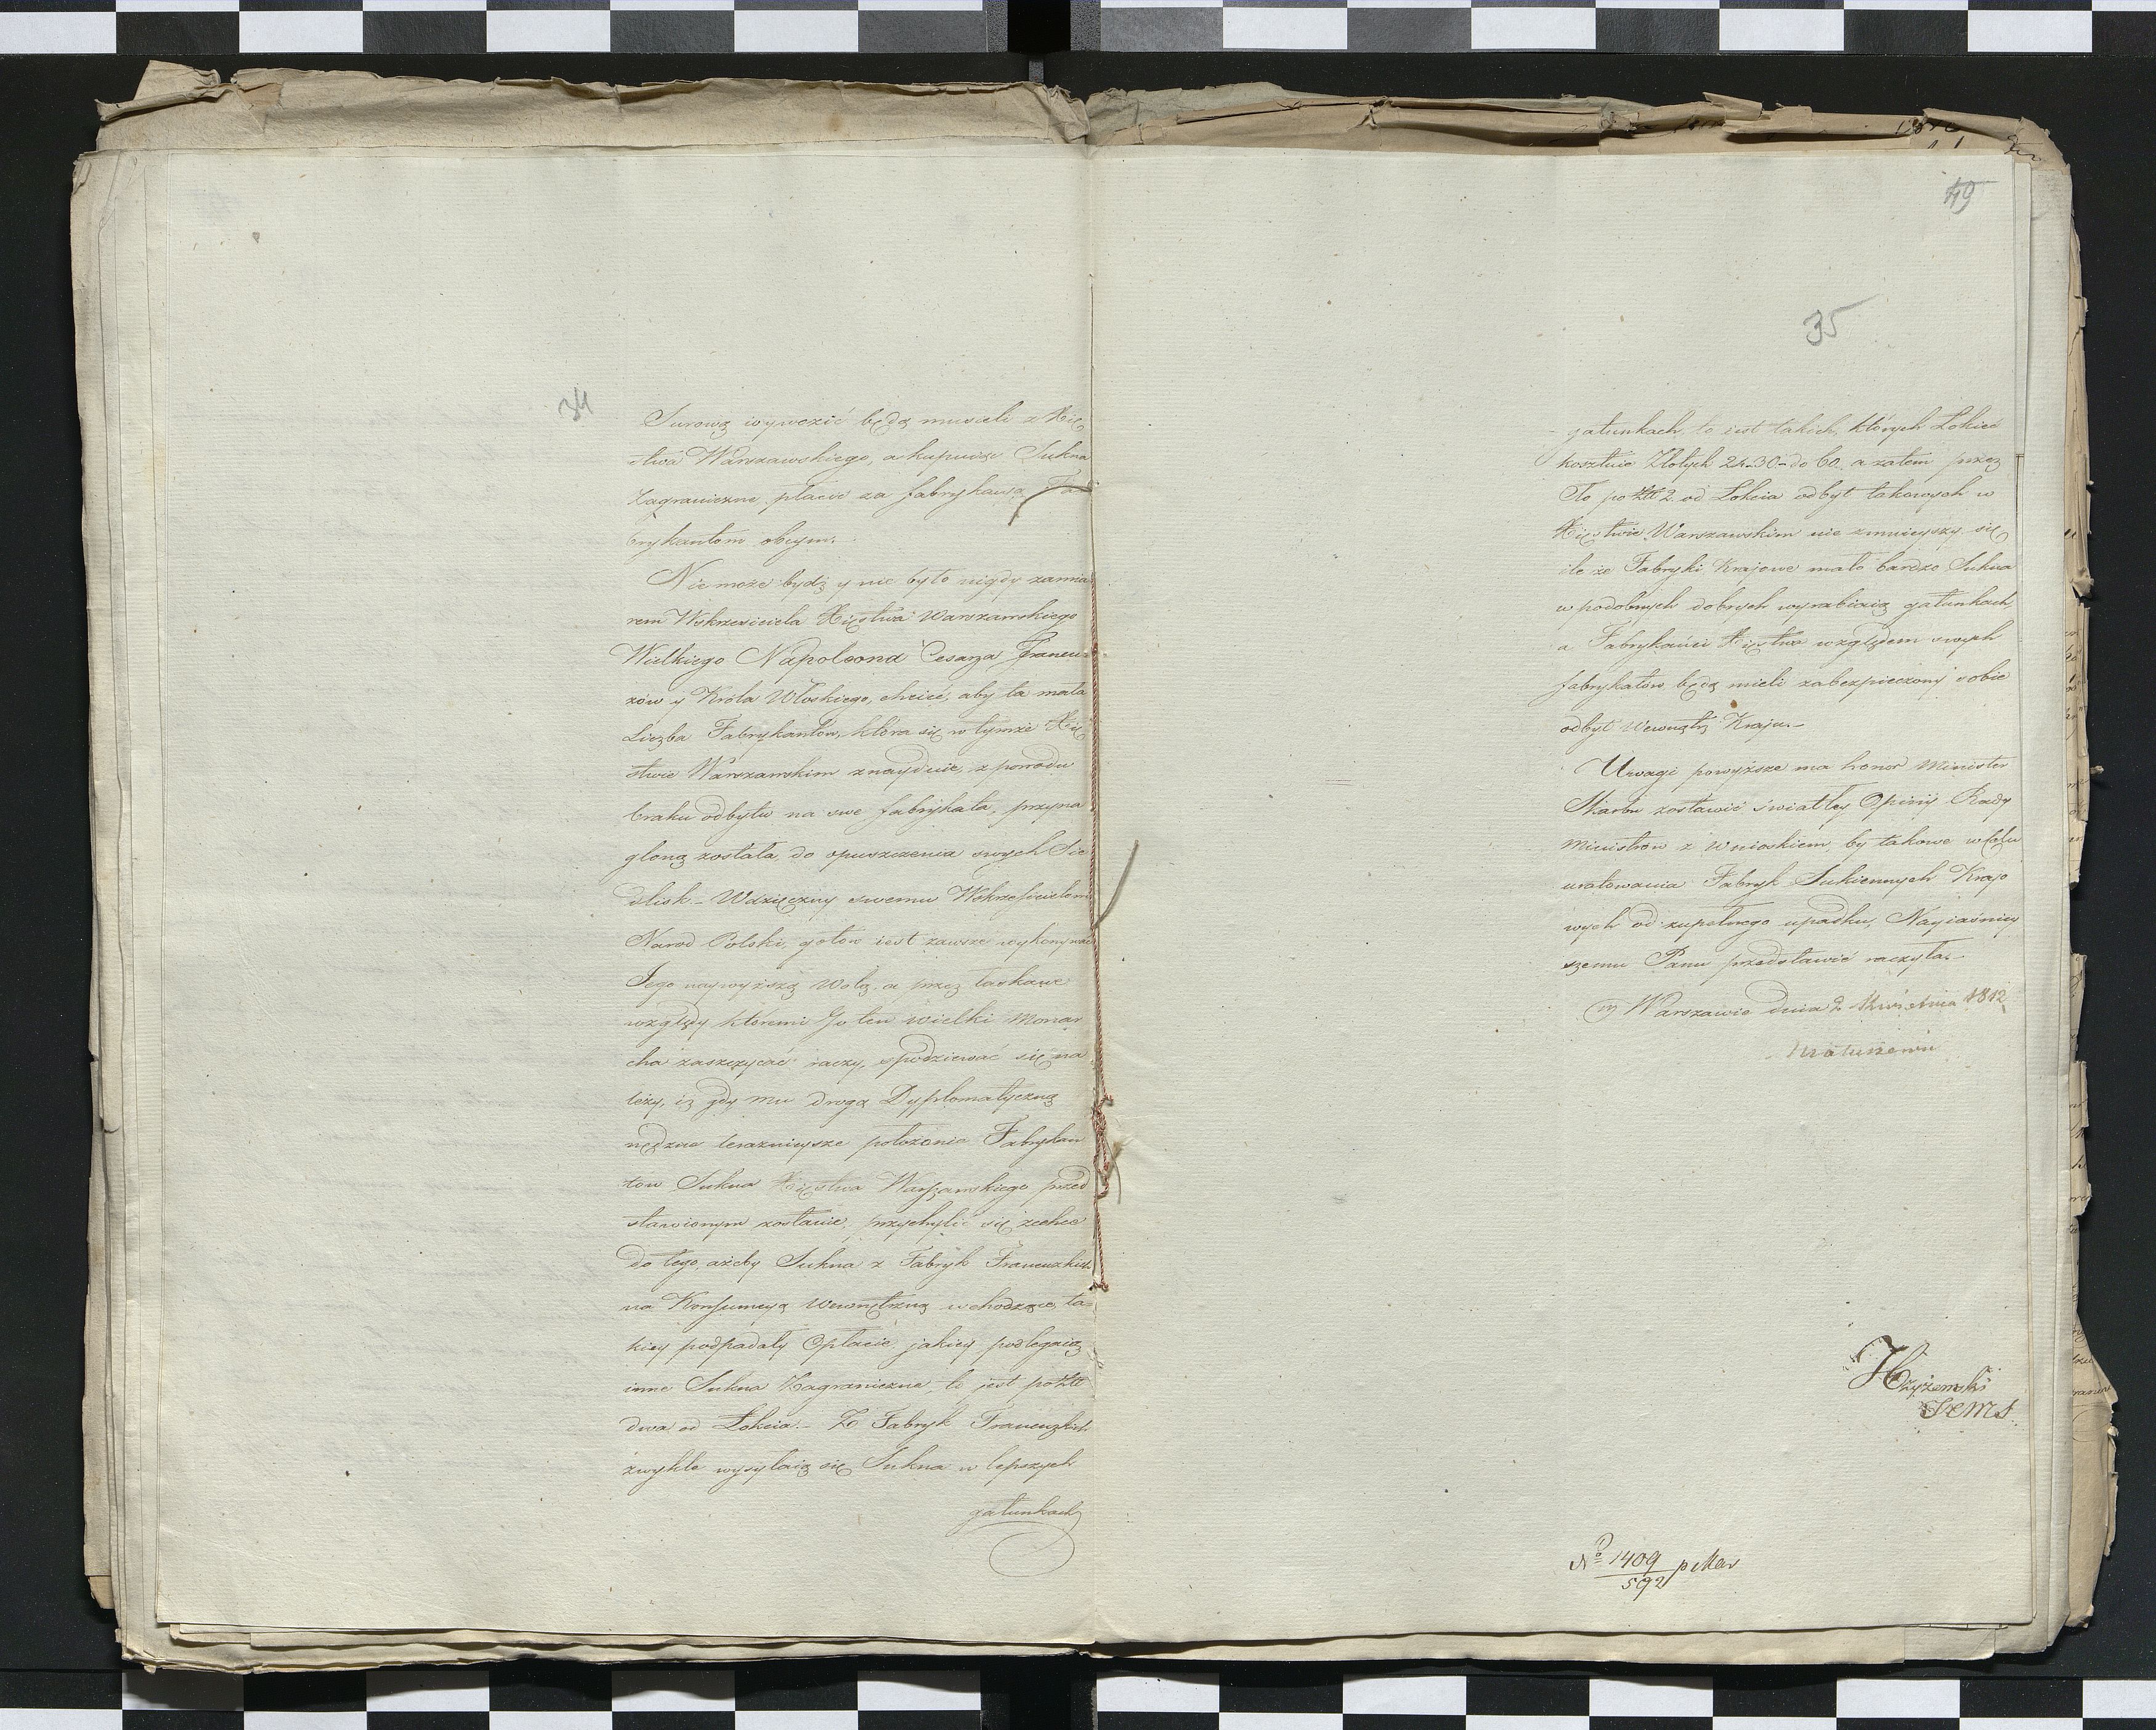 34
Surową wywozić będą musieli z Xię
stwa Warszawskiego, a kupując Sukna
Zagraniczne, płacić za fabrykawą Fa
brykantom obcym.
Nie może bydź y nie było nigdy zamia
rem Wskrzesiciela Xięstwa Warszawskiego
Wielkiego Napoleona Cesarza Francu
zów y Króla Włoskiego, chcieć, aby ta mała
Liczba Fabrykantów, która się w tymże Xię
stwie Warszawskim znayduie, z powodu
braku odbytu na swe fabrykata, przyna
gloną została, do opuszczenia swych Sie
dlisk. – Wdzięczny swemu Wskrzesicielowi
Narod Polski, gotów iest zawsze wykonywać
Jego naywyższą Wolą, a przez łaskawe
względy któremi Go ten wielki Monar
cha zaszczycać raczy, spodziewać się na
leży, iż gdy mu drogą Dyplomatyczną
nędzne teraznieysze położenie Fabrykan
tow Sukna Xięstwa Warszawskiego przed
stawionym zostanie, przychylić się zechce
do tego, ażeby Sukna z Fabryk Francuzkich
na Konsumcyą Wewnętrzną wchodzące, ta=
kiey podpadały Opłacie jakiey podlegaią
inne Sukna Zagraniczne, to jest po Złł
dwa od Łokcia. – Z Fabryk Francuzkich
zwykle wysyłaią się Sukna w lepszych
gatunkach
49
35
gatunkach, to iest takich, których Łokieć
kosztuie Złotych 24–30– do 60. a zatem przez
To po Złł 2. od Łokcia odbyt takowych w
Xięstwie Warszawskim nie zmnieyszy się,
ile że Fabryki Krajowe mało bardzo Sukna
w podobnych dobrych wyrabiaią gatunkach
a Fabrykańci Xięstwa względem swych
fabrykatów będą mieli zabezpieczony sobie
odbyt Wewnątrz Kraju. –
Uwagi powyższe ma honor Minister
Skarbu zostawić światłey Opinij Rady
Ministrow z Wnioskiem, by takowe w Celu
uratowania Fabryk Sukiennych Krajo
wych od zupełnego upadku, Nayiaśniey
szemu Panu przedstawić raczyła. –
w Warszawie dnia 2 Kwietnia 1812
Matuszewic
No 1409/592 p Mar